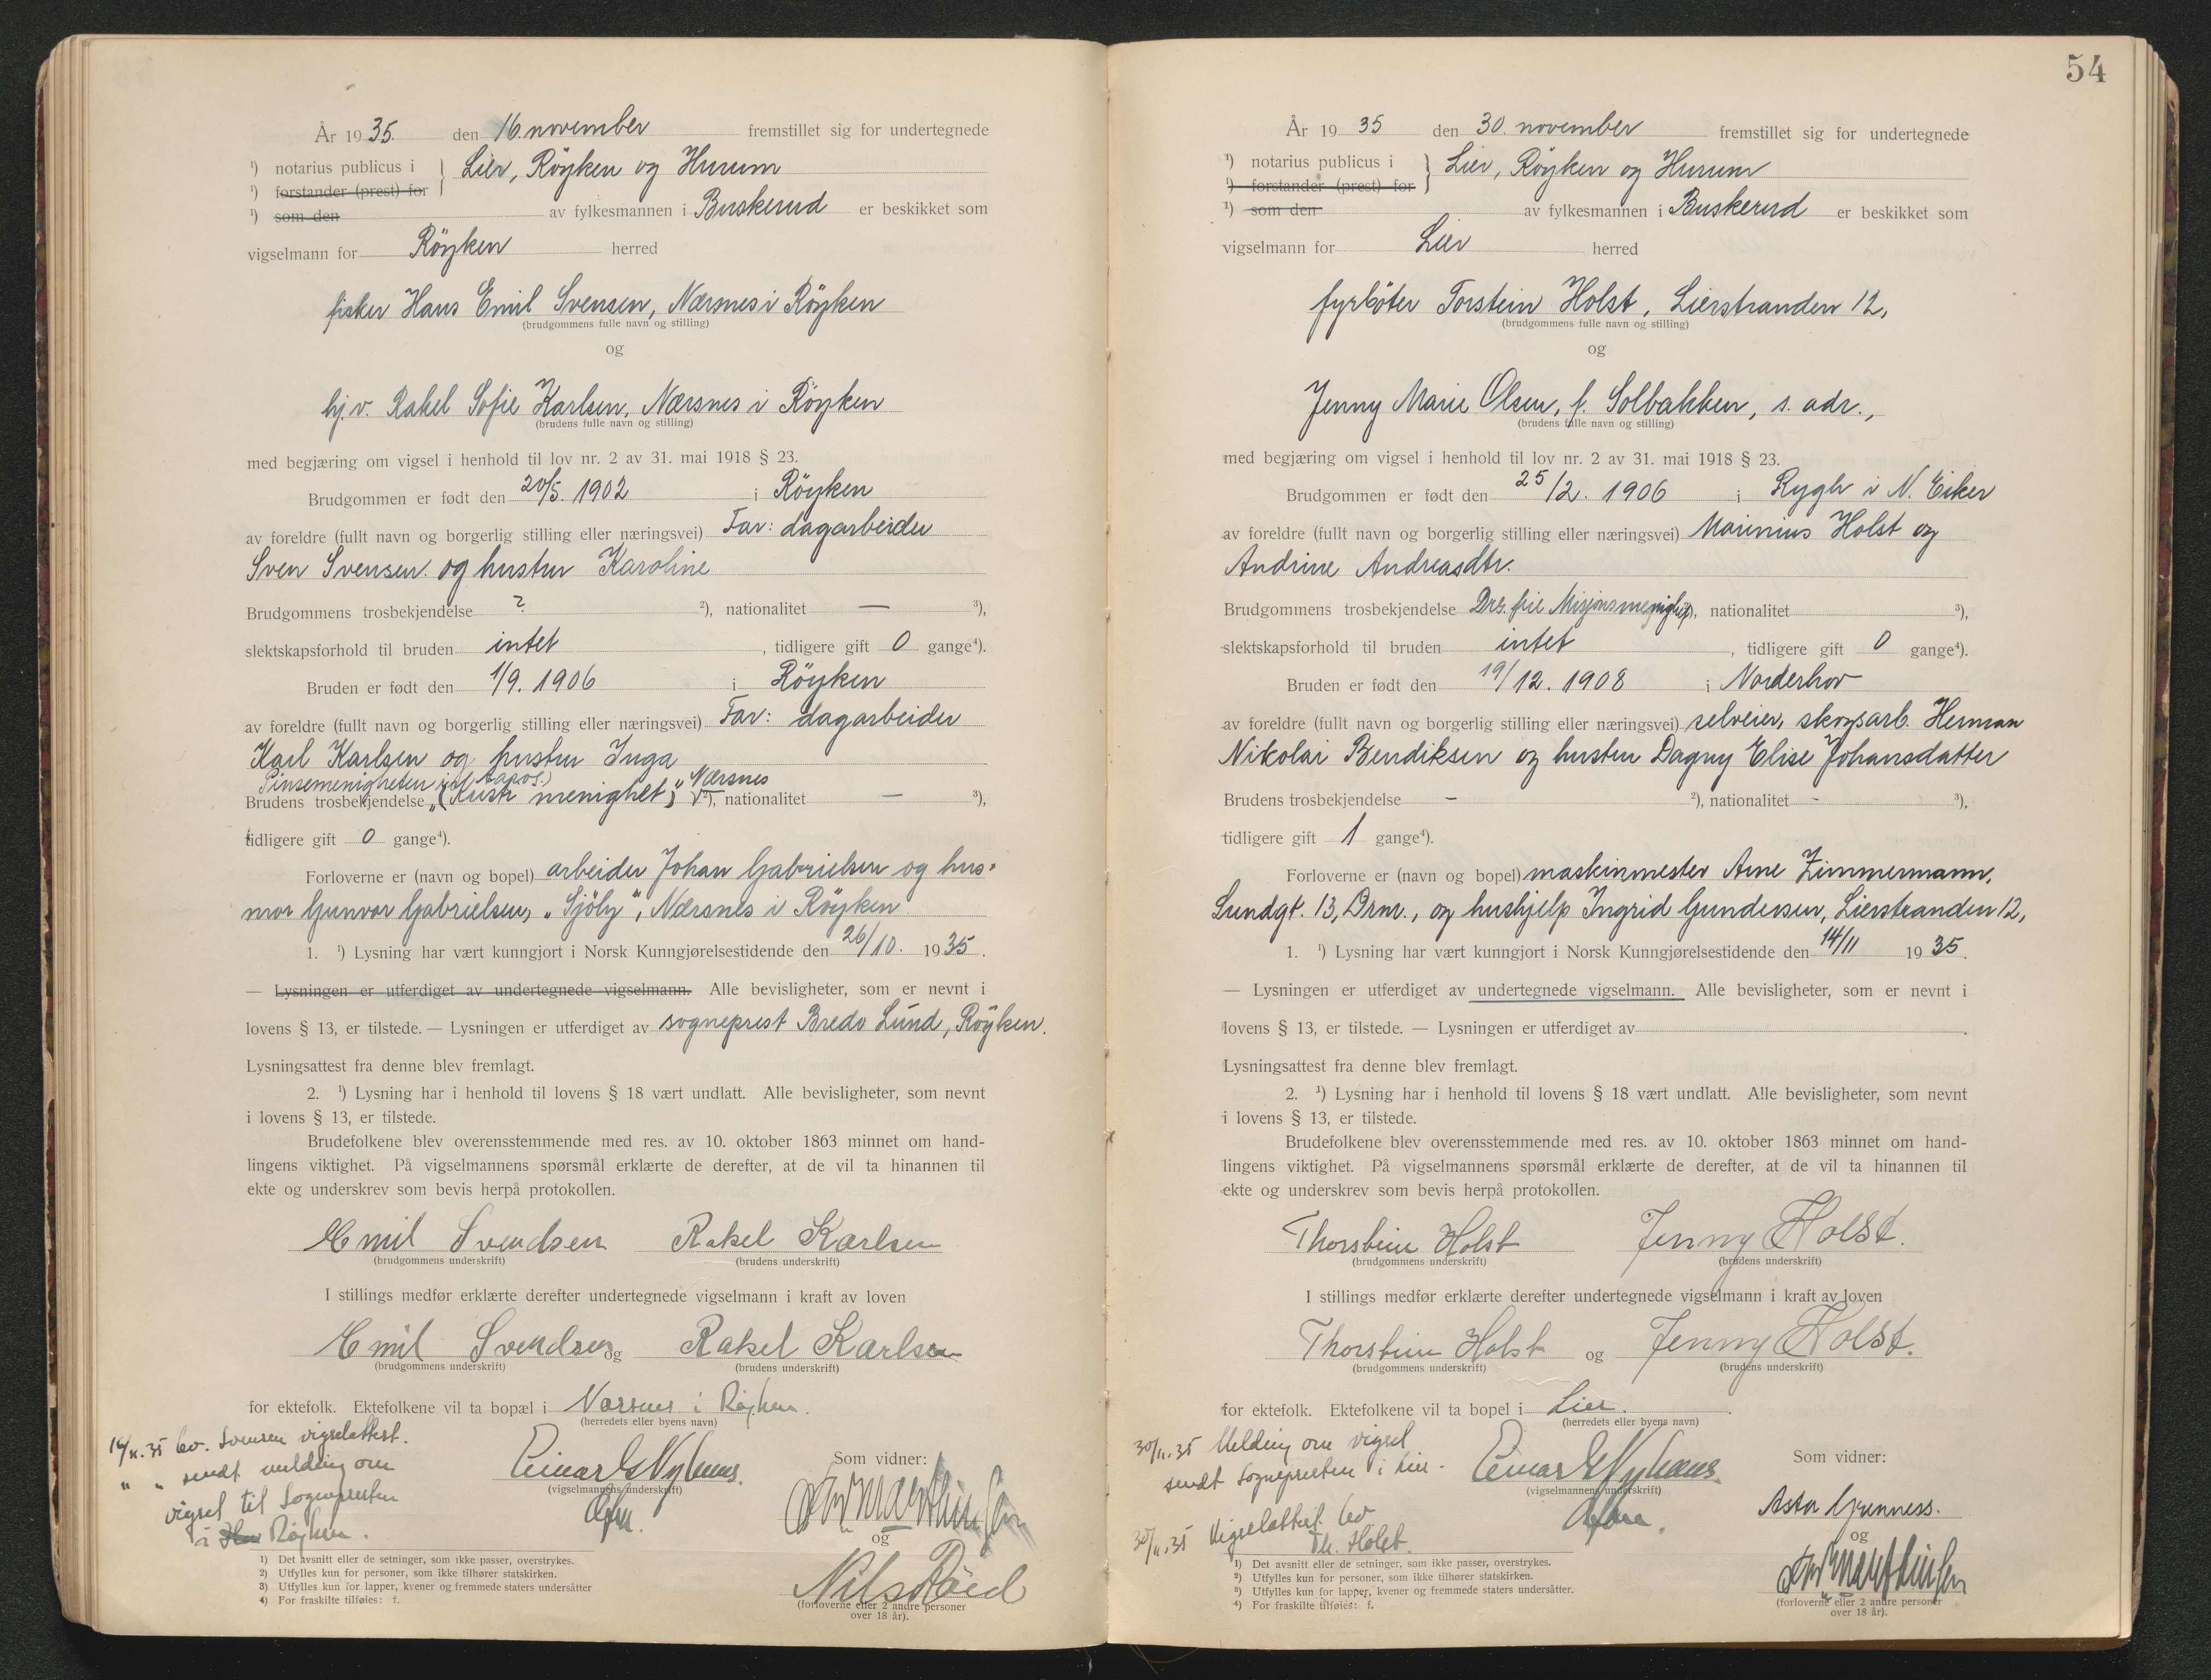 År 1935. den 16. november fremstillet sig for undertegnede
¹) notarius publicus i } Lier, Röyken og Hurum
¹) forstander (prest) for
¹) som den av fylkesmannen i Buskerud er beskikket som
vigselmann for Röyken herred
fisker Hans Emil Svensen, Nærsnes i Röyken
(brudgommens fulle navn og stilling)
og
hj.v. Rakel Sofie Karlsen, Nærsnes i Röyken
(brudens fulle navn og stilling)
med begjæring om vigsel i henhold til lov nr. 2 av 31. mai 1918 § 23.
Brudgommen er født den 20/5. 1902 i Röyken
av foreldre (fullt navn og borgerlig stilling eller næringsvei) Far: dagarbeider
Sven Svensen. og hustru Karoline
Brudgommens trosbekjendelse ? ²), nationalitet — ³),
slektskapsforhold til bruden intet, tidligere gift 0 gange⁴).
Bruden er født den 1/9. 1906 i Röyken
av foreldre (fullt navn og borgerlig stilling eller næringsvei) Far: dagarbeider
Karl Karlsen og hustru Inga
Pinsemenigheten Nærsnes
Brudens trosbekjendelse menighet" ²), nationalitet — ³),
tidligere gift 0 gange⁴).
Forloverne er (navn og bopel) arbeider Johan Gabrielsen og hus-
mor Gunvor Gabrielsen, „Sjöly", Nærsnes i Röyken
1. ¹) Lysning har vært kunngjort i Norsk Kunngjørelsestidende den 26/10. 1935.
— Lysningen er utferdiget av undertegnede vigselmann. Alle bevisligheter, som er nevnt i
lovens § 13, er tilstede. — Lysningen er utferdiget av sogneprest Bredo Lund, Röyken.
Lysningsattest fra denne blev fremlagt.
2. ¹) Lysning har i henhold til lovens § 18 vært undlatt. Alle bevisligheter, som nevnt
i lovens § 13, er tilstede.
Brudefolkene blev overensstemmende med res. av 10. oktober 1863 minnet om hand-
lingens viktighet. På vigselmannens spørsmål erklærte de derefter, at de vil ta hinannen til
ekte og underskrev som bevis herpå protokollen.
Emil Svendsen Rakel Karlsen
(brudgommens underskrift) (brudens underskrift)
I stillings medfør erklærte derefter undertegnede vigselmann i kraft av loven
Emil Svendsen og Rakel Karlsen
(brudgommens underskrift) (brudens underskrift)
for ektefolk. Ektefolkene vil ta bopæl i Nærsnes i Røyken.
(herredets eller byens navn)
16/11.35 lev. Svensen vigselattest.
" " sendt melding om
vigsel til Sognepresten
i Røyken.
Einar Nyhuus
(vigselmannens underskrift)
Som vidner:
og
(forloverne eller 2 andre personer
over 18 år).
1) Det avsnitt eller de setninger, som ikke passer, overstrykes.
2) Utfylles kun for personer, som ikke tilhører statskirken.
3) Utfylles kun for lapper, kvener og fremmede staters undersåtter
4) For fraskilte tilføies: f.
54
År 1935 den 30. november fremstillet sig for undertegnede
¹) notarius publicus i } Lier, Röyken og Hurum
¹) forstander (prest) for
¹) som den av fylkesmannen i Buskerud er beskikket som
vigselmann for Lier herred
fyrböter Torstein Holst, Lierstranden 12,
(brudgommens fulle navn og stilling)
og
Jenny Marie Olsen, f. Solbakken, s. adr.,
(brudens fulle navn og stilling)
med begjæring om vigsel i henhold til lov nr. 2 av 31. mai 1918 § 23.
Brudgommen er født den 25/2. 1906 i Rygh i N. Eiker
av foreldre (fullt navn og borgerlig stilling eller næringsvei) Marinius Holst og
Andrine Andreasdtr.
Brudgommens trosbekjendelse Drs. frie Misjonsmenighet²), nationalitet ³),
slektskapsforhold til bruden intet, tidligere gift 0 gange⁴).
Bruden er født den 19/12. 1908 i Norderhov
av foreldre (fullt navn og borgerlig stilling eller næringsvei) selveier, skogsarb. Herman
Nikolai Bendiksen og hustru Dagny Elise Johansdatter
Brudens trosbekjendelse - ²), nationalitet - ³),
tidligere gift 1 gange⁴).
Forloverne er (navn og bopel) maskinmester Arne Zimmermann,
Sundgt. 13, Drm., og hushjelp Ingrid Gundersen, Lierstranden 12,
1. ¹) Lysning har vært kunngjort i Norsk Kunngjørelsestidende den 14/11 1935.
— Lysningen er utferdiget av undertegnede vigselmann. Alle bevisligheter, som er nevnt i
lovens § 13, er tilstede. — Lysningen er utferdiget av .
Lysningsattest fra denne blev fremlagt.
2. ¹) Lysning har i henhold til lovens § 18 vært undlatt. Alle bevisligheter, som nevnt
i lovens § 13, er tilstede.
Brudefolkene blev overensstemmende med res. av 10. oktober 1863 minnet om hand-
lingens viktighet. På vigselmannens spørsmål erklærte de derefter, at de vil ta hinannen til
ekte og underskrev som bevis herpå protokollen.
Thorstein Holst Jenny Holst.
(brudgommens underskrift) (brudens underskrift)
I stillings medfør erklærte derefter undertegnede vigselmann i kraft av loven
Thorstein Holst og Jenny Holst.
(brudgommens underskrift) (brudens underskrift)
for ektefolk. Ektefolkene vil ta bopel i Lier.
(herredets eller byens navn)
30/11.35 Melding om vigsel
sendt Sognepresten i Lier.
30/11.35 Vigselattest lev.
Th. Holst.
Einar Nyhuus
(vigselmannens underskrift)
Som vidner:
Asta Grenness.
og
(forloverne eller 2 andre personer
over 18 år).
1) Det avsnitt eller de setninger, som ikke passer, overstrykes.
2) Utfylles kun for personer, som ikke tilhører statskirken.
3) Utfylles kun for lapper, kvener og fremmede staters undersåtter.
4) For fraskilte tilføies: f.